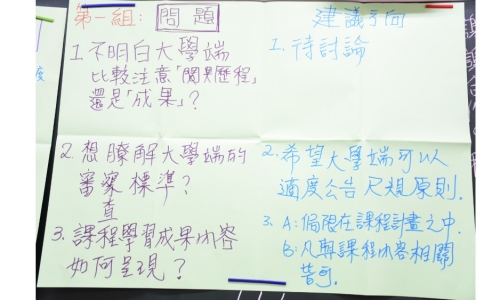 第一組: 問題
1. 不明白大學端
比較注意「歷程」
還是「成果」?
2. 想瞭解大學端的
審察標準?
3. 課程學習成果內容
如何呈現?
建議方向
1. 待討論
2. 希望大學端可以
適度公告尺規原則.
3. A:侷限在課程計畫之中.
B:凡與課程內容相關
皆可.